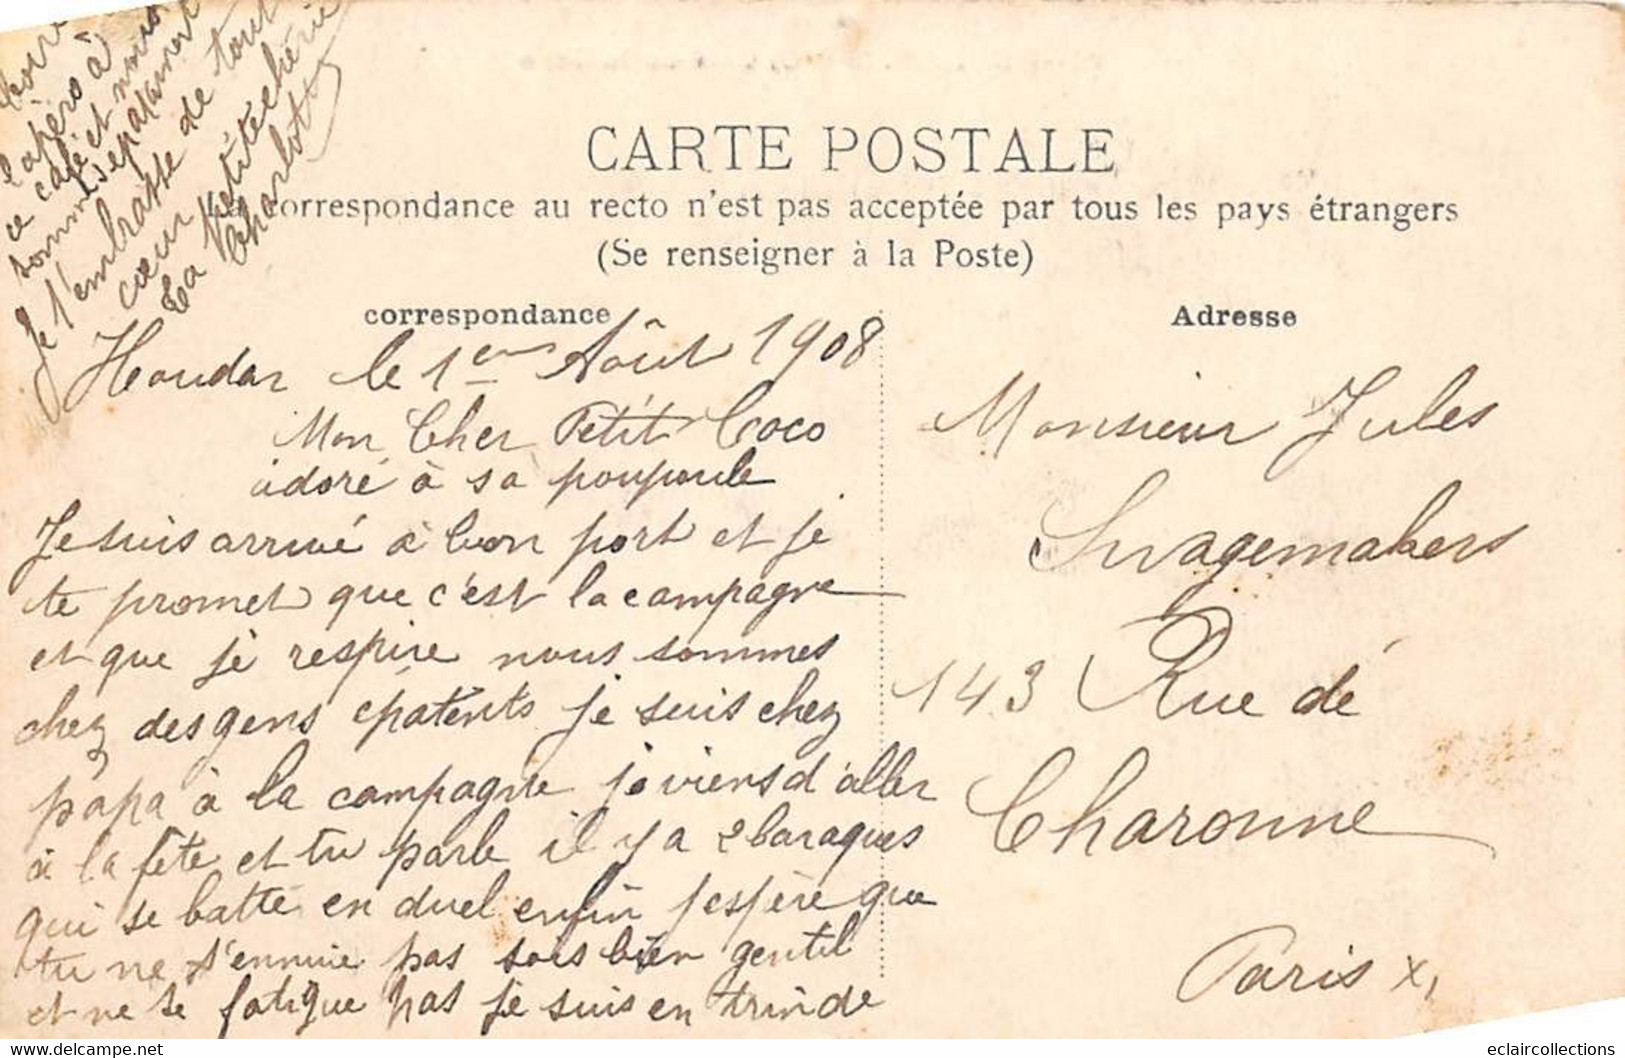 CARTE POSTALE
La correspondance au recto n'est pas acceptée par tous les pays étrangers
(Se renseigner à la Poste)
correspondance
Adresse
Houdan le 1er Août 1908
Mon Cher Petit Coco
adoré à sa poupoule
Je suis arrivé à bon port et je
te promet que c'est la campagne
et que je respire nous sommes
chez des gens épatents je suis chez
papa à la campagne je viens d'aller
à la fête et tu parle il y a 2 baraques
qui se batte en duel enfin j'espère que
tu ne t'ennuie pas sois bien gentil
et ne te fatigue pas je suis en train de
boire
l'apéro à
ce café et nous
sommes épatament
Je t'embrasse de tout
cœur
ta petite chérie
Charlotte
Monsieur Jules
Swagemakers
143 Rue de
Charonne
Paris XI
eclaircollections
www.delcampe.net